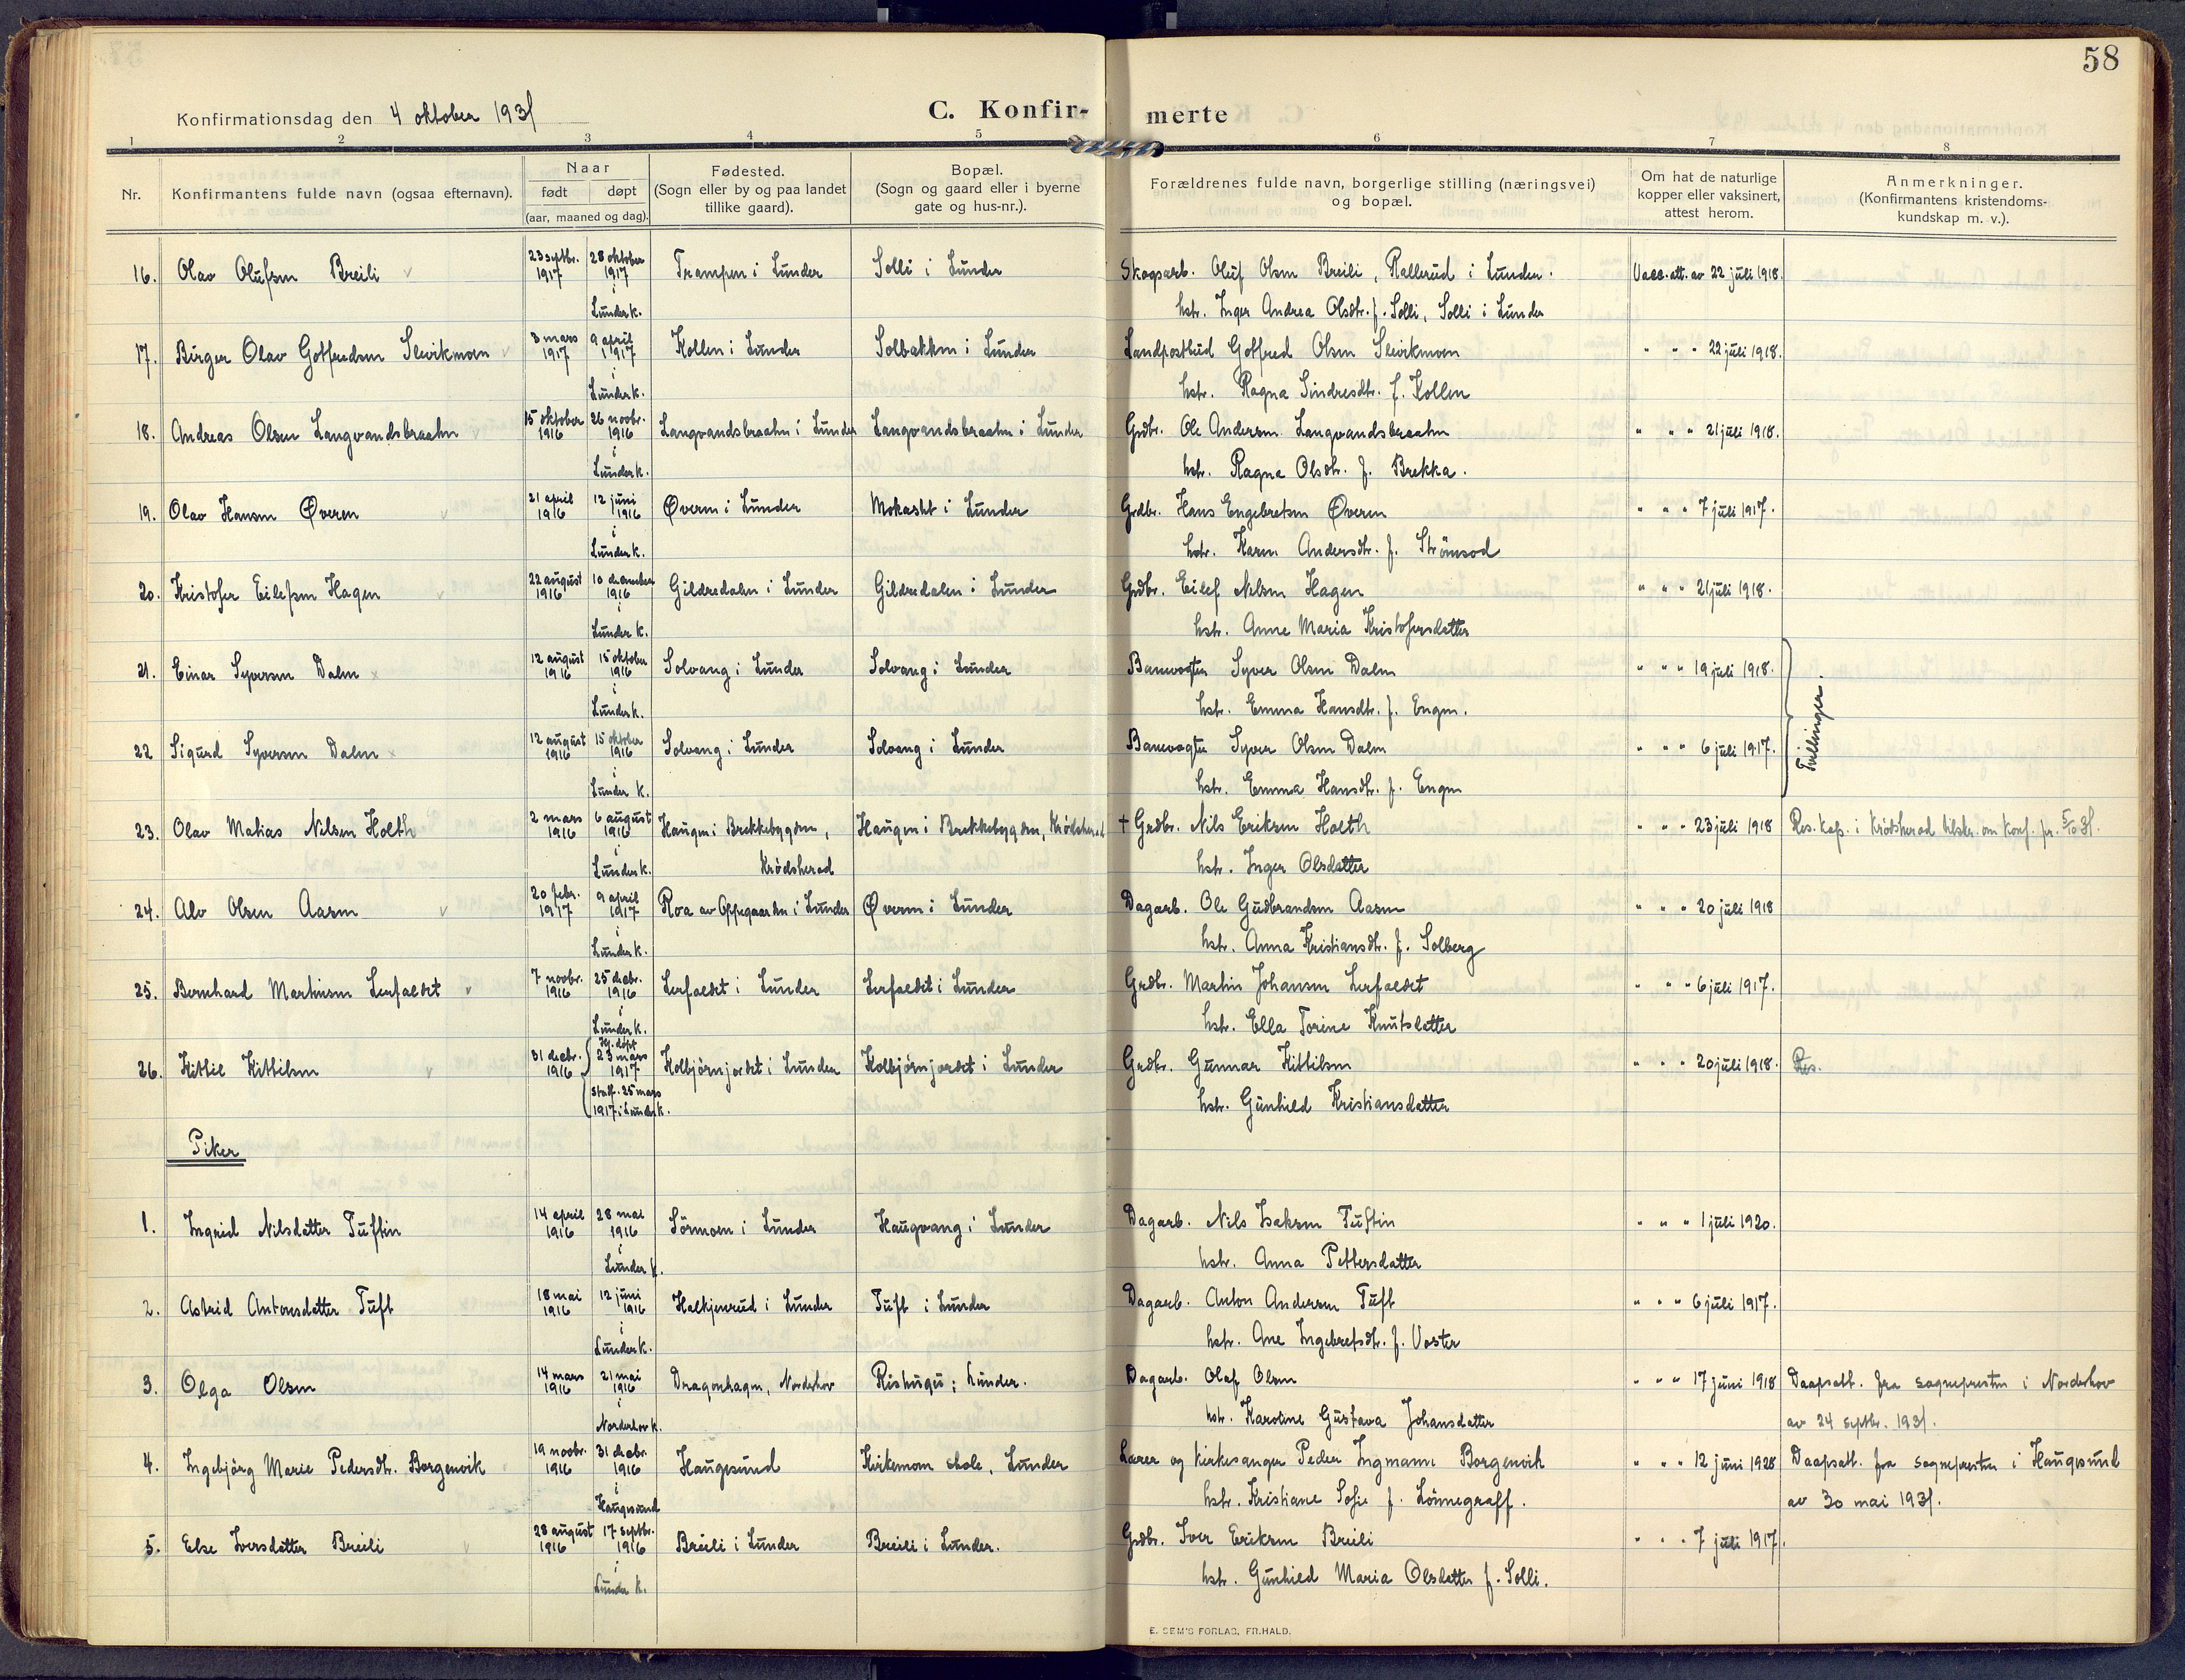 58
Konfirmationsdag den 4 oktober 1931
C. Konfir-
merte
1 2 3 4 5 6 7 8
Nr. Konfirmantens fulde navn (ogsaa efternavn).
Naar
født døpt
(aar, maaned og dag).
Fødested.
(Sogn eller by og paa landet
tillike gaard).
Bopæl.
(Sogn og gaard eller i byerne
gate og hus-nr.).
Forældrenes fulde navn, borgerlige stilling (næringsvei)
og bopæl.
Om hat de naturlige
kopper eller vaksinert,
attest herom.
Anmerkninger.
(Konfirmantens kristendoms-
kundskap m. v.).
16. Olav Olufsen Breili 23 septbr. 1917 28 oktober 1917 Trampen i Lunder Solli i Lunder Skogsarb. Oluf Olsen Breili, Rallerud i Lunder. Vacc. att. av 22 juli 1918.
i Lunder k. hstr. Inger Andrea Olsdtr. f. Solli, Solli i Lunder
17. Birger Olav Gotfredsen Slevikmoen 3 mars 1917 9 april 1917 Kollen i Lunder Solbakken i Lunder Landpostbud Gotfred Olsen Slevikmoen " " " 22 juli 1918.
i Lunder k. hstr. Ragna Sindresdtr. f. Kollen
18. Andreas Olsen Langvandsbraaten 15 oktober 1916 26 novbr. 1916 Langvandsbraaten i Lunder Langvandsbraaten i Lunder Grdbr. Ole Andersen Langvandsbraaten " " " 21 juli 1918.
i Lunder k. hstr. Ragna Olsdtr. f. Brekka.
19. Olav Hansen Øveren 21 april 1916 12 juni 1916 Øveren i Lunder Mokastet i Lunder Grdbr. Hans Engebretsen Øveren " " " 7 juli 1917.
i Lunder k. hstr. Karen Andersdtr. f. Strømsod
20. Kristofer Eilefsen Hagen 22 august 1916 10 december 1916 Gildredalen i Lunder Gildredalen i Lunder Grdbr. Eilef Nelsen Hagen " " " 21 juli 1918.
i Lunder k. hstr. Anne Maria Kristofersdatter
21. Einar Syversen Dalen 12 august 1916 15 oktober 1916 Solvang i Lunder Solvang i Lunder Banevogter Syver Olsen Dalen " " " 19 juli 1918.
i Lunder k. hstr. Emma Hansdtr. f. Engen.
Tvillinger.
22 Sigurd Syversen Dalen 12 august 1916 15 oktober 1916 Solvang i Lunder Solvang i Lunder Banevogter Syver Olsen Dalen " " " 6 juli 1917.
i Lunder k. hstr. Emma Hansdtr. f. Engen
23. Olav Matias Nelsen Holth 2 mars 1916 6 august 1916 Haugen i Brekkebygden, Haugen i Brekkebygden, Krødsherad + Grdbr. Nils Eriksen Holth " " " 23 juli 1918 Res. kap. i Krødsherad tilskr. om konf. pr. 5/10 31.
i Lunder k. Krødsherad hstr. Inger Olsdatter
24. Alv Olsen Aasen 20 febr. 1917 9 april 1917 Roa av Oppegaarden i Lunder Øveren i Lunder Dagarb. Ole Gudbrandsen Aasen " " " 20 juli 1918
i Lunder k. hstr. Anna Kristiansdtr. f. Solberg
25. Bernhard Martinsen Lerfaldet 7 novbr. 1916 25 decbr. 1916 Lerfaldet i Lunder Lerfaldet i Lunder Grdbr. Martin Johansen Lerfaldet " " " 6 juli 1917.
i Lunder k. hstr. Ella Torine Knutsdatter
26. Kittil Kittilsen 31 decbr. 1916 Hj. døpt 23 mars 1917 Kolbjørnjordet i Lunder Kolbjørnjordet i Lunder Grdbr. Gunnar Kittilsen " " " 20 juli 1918. Res.
stadf. 25 mars 1917 i Lunder k. hstr. Gunhild Kristiansdatter
Piker
1. Ingrid Nilsdatter Tuftin 14 april 1916 28 mai 1916 Sörmoen i Lunder Haugvang i Lunder Dagarb. Nils Isaksen Tuftin " " " 1 juli 1920.
i Lunder k. hstr. Anna Pettersdatter
2. Astrid Antonsdatter Tuft 18 mai 1916 12 juni 1916 Halkjenrud i Lunder Tuft i Lunder Dagarb. Anton Andersen Tuft " " " 6 juli 1917.
i Lunder k. hstr. Ane Ingebretsdtr. f. Voster
3. Olga Olsen 14 mars 1916 21 mai 1916 Dragonhagen, Norderhov Rishugu i Lunder. Dagarb. Olaf Olsen " " " 17 juni 1918 Daapsatt. fra sognepresten i Norderhov
i Norderhov k. hstr. Karoline Gustava Johansdatter av 24 septbr. 1931.
4. Ingebjörg Marie Pedersdtr. Borgenvik 19 novbr. 1916 31 decbr. 1916 Haugesund Kirkemoen skole, Lunder Lærer og kirkesanger Peder Ingmann Borgenvik " " " 12 juni 1928 Daapsatt. fra sognepresten i Haugesund
i Haugesund hstr. Kristiane Sofie f. Lönnegraff. av 30 mai 1931.
5. Else Iversdatter Breili 28 august 1916 17 septbr. 1916 Breili i Lunder Breili i Lunder. Grdbr. Iver Eriksen Breili " " " 7 juli 1917.
i Lunder k. hstr. Gunhild Maria Olsdatter f. Solli.
E. SEM'S FORLAG, FR.HALD.